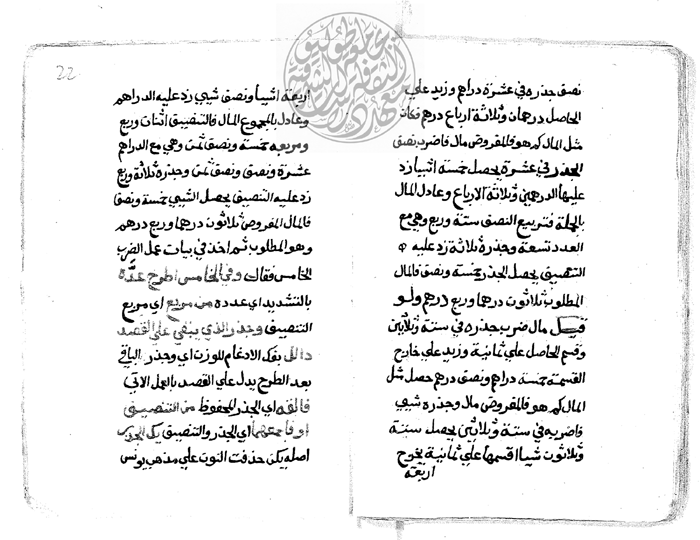 نصف جذره في عشرة دراهم وزيد علي
الحاصل درهمان وثلاثة ارباع درهم فكان
مثل المال كم هو فالمفروض مال فاضرب نصف
الجذر في عشرة يحصل خمسة اشيا زد
عليها الدرهمين وثلاثة الارباع وعادل المال
بالجملة فتربيع النصف ستة وربع وهي مع
العدد تسعة وجذره ثلاثة زد عليه
التنصيف يحصل الجذر خمسة ونصف فالمال
المطلوب ثلاثون درهما وربع درهم ولو
قيل مال ضرب جذره في ستة وثلاثين
وقسم الحاصل علي ثمانية وزيد علي خارج
القسمة خمسة دراهم ونصف درهم حصل مثل
المال كم هو فالمفروض مال وجذره شيي
فاضربه في ستة وثلاثين يحصل ستة
وثلاثون شيا اقسمها علي ثمانية يخرج
اربعة
22
اربعة اشيا ونصف شيي زد عليه الدراهم
وعادل بالمجموع المال فالتنصيف اثنان وربع
ومربعه خمسة ونصف ثمن وهي مع الدراهم
عشرة ونصف ونصف ثمن وجذره ثلاثة وربع
زد عليه التنصيف يحصل الشيي خمسة ونصف
فالمال المفروض ثلاثون درهما وربع درهم
وهو المطلوب ثم اخذ في بيان عمل الضرب
الخامس فقال وفي الخامس اطرح عدّه
بالتشديد اي عدده من مربع اي مربع
التنصيف وجذر الذي يبقي علي القصد
دالل بفك الادغام للوزن اي وجذر الباقي
بعد الطرح يدل علي القصد بالعمل الاتي
فالقه اي الجذر المحفوظ من التنصيف
او فاجمعهما اي الجذر والتنصيف يك الجذر
اصله يكن حذفت النون علي مذهب يونس